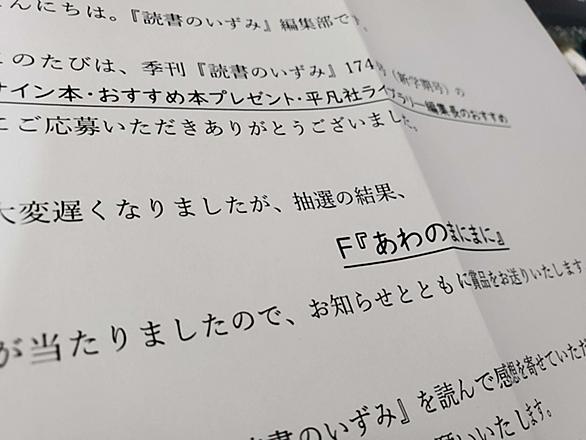 んにちは。『読書のいずみ』編集部です。
このたびは、季刊『読書のいずみ』174号（新学期号）の
サイン本・おすすめ本プレゼント・平凡社ライブラリー編集長のおすすめ
にご応募いただきありがとうございました。
大変遅くなりましたが、抽選の結果、
F『あわのまにまに』
が当たりましたので、お知らせとともに賞品をお送りいたします
書のいずみ』を読んで感想を寄せていただ
いいたします。